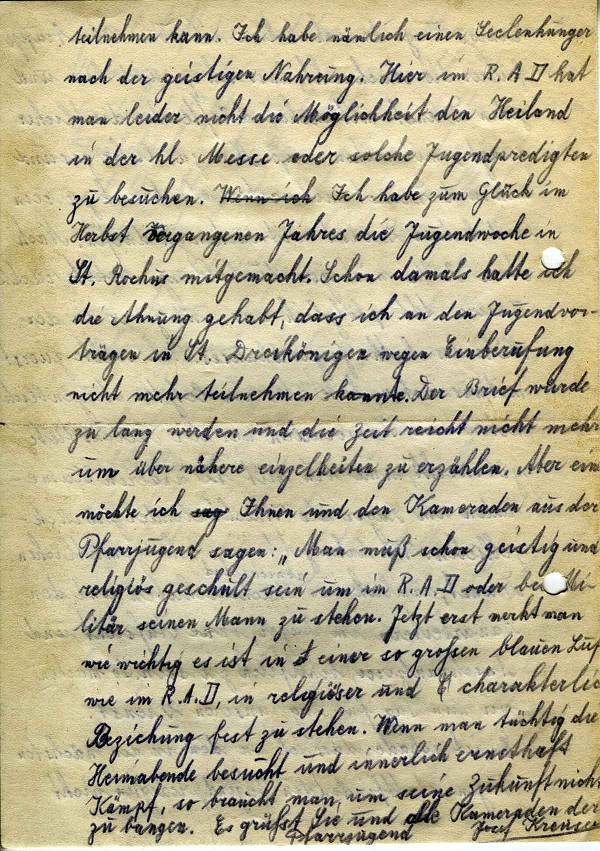 teilnehmen kann. Ich habe nämlich einen Seelenhunger
nach der geistigen Nahrung. Hier im R.A.D hat
man leider nicht die Möglichkeit den Heiland
in der hl. Messe oder solche Jugendpredigten
zu besuchen. Wenn ich Ich habe zum Glück im
Herbst vergangenen Jahres die Jugendwoche in
St. Rochus mitgemacht. Schon damals hatte ich
die Ahnung gehabt, dass ich an den Jugendvor-
trägen in St. Dreikönigen wegen Einberufung
nicht mehr teilnehmen konnte. Der Brief würde
zu lang werden und die Zeit reicht nicht mehr
um über nähere einzelheiten zu erzählen. Aber ein
möchte ich sag Ihnen und den Kameraden aus der
Pfarrjugend sagen: „Man muß schon geistig und
religiös geschult sein um im R.A.D oder bei Mi-
litär seinen Mann zu stehen. Jetzt erst merkt man
wie wichtig es ist in einer so großen blauen Luf
wie im R.A.D, in religiöser und charakterlic
Beziehung fest zu stehen. Wenn man tüchtig die
Heimabende besucht und innerlich ernsthaft
Kämpf, so braucht man, um seine Zukunft nich
zu bangen. Es grüßt Sie und alle Kameraden der
Pfarrjugend Josef Kreuser